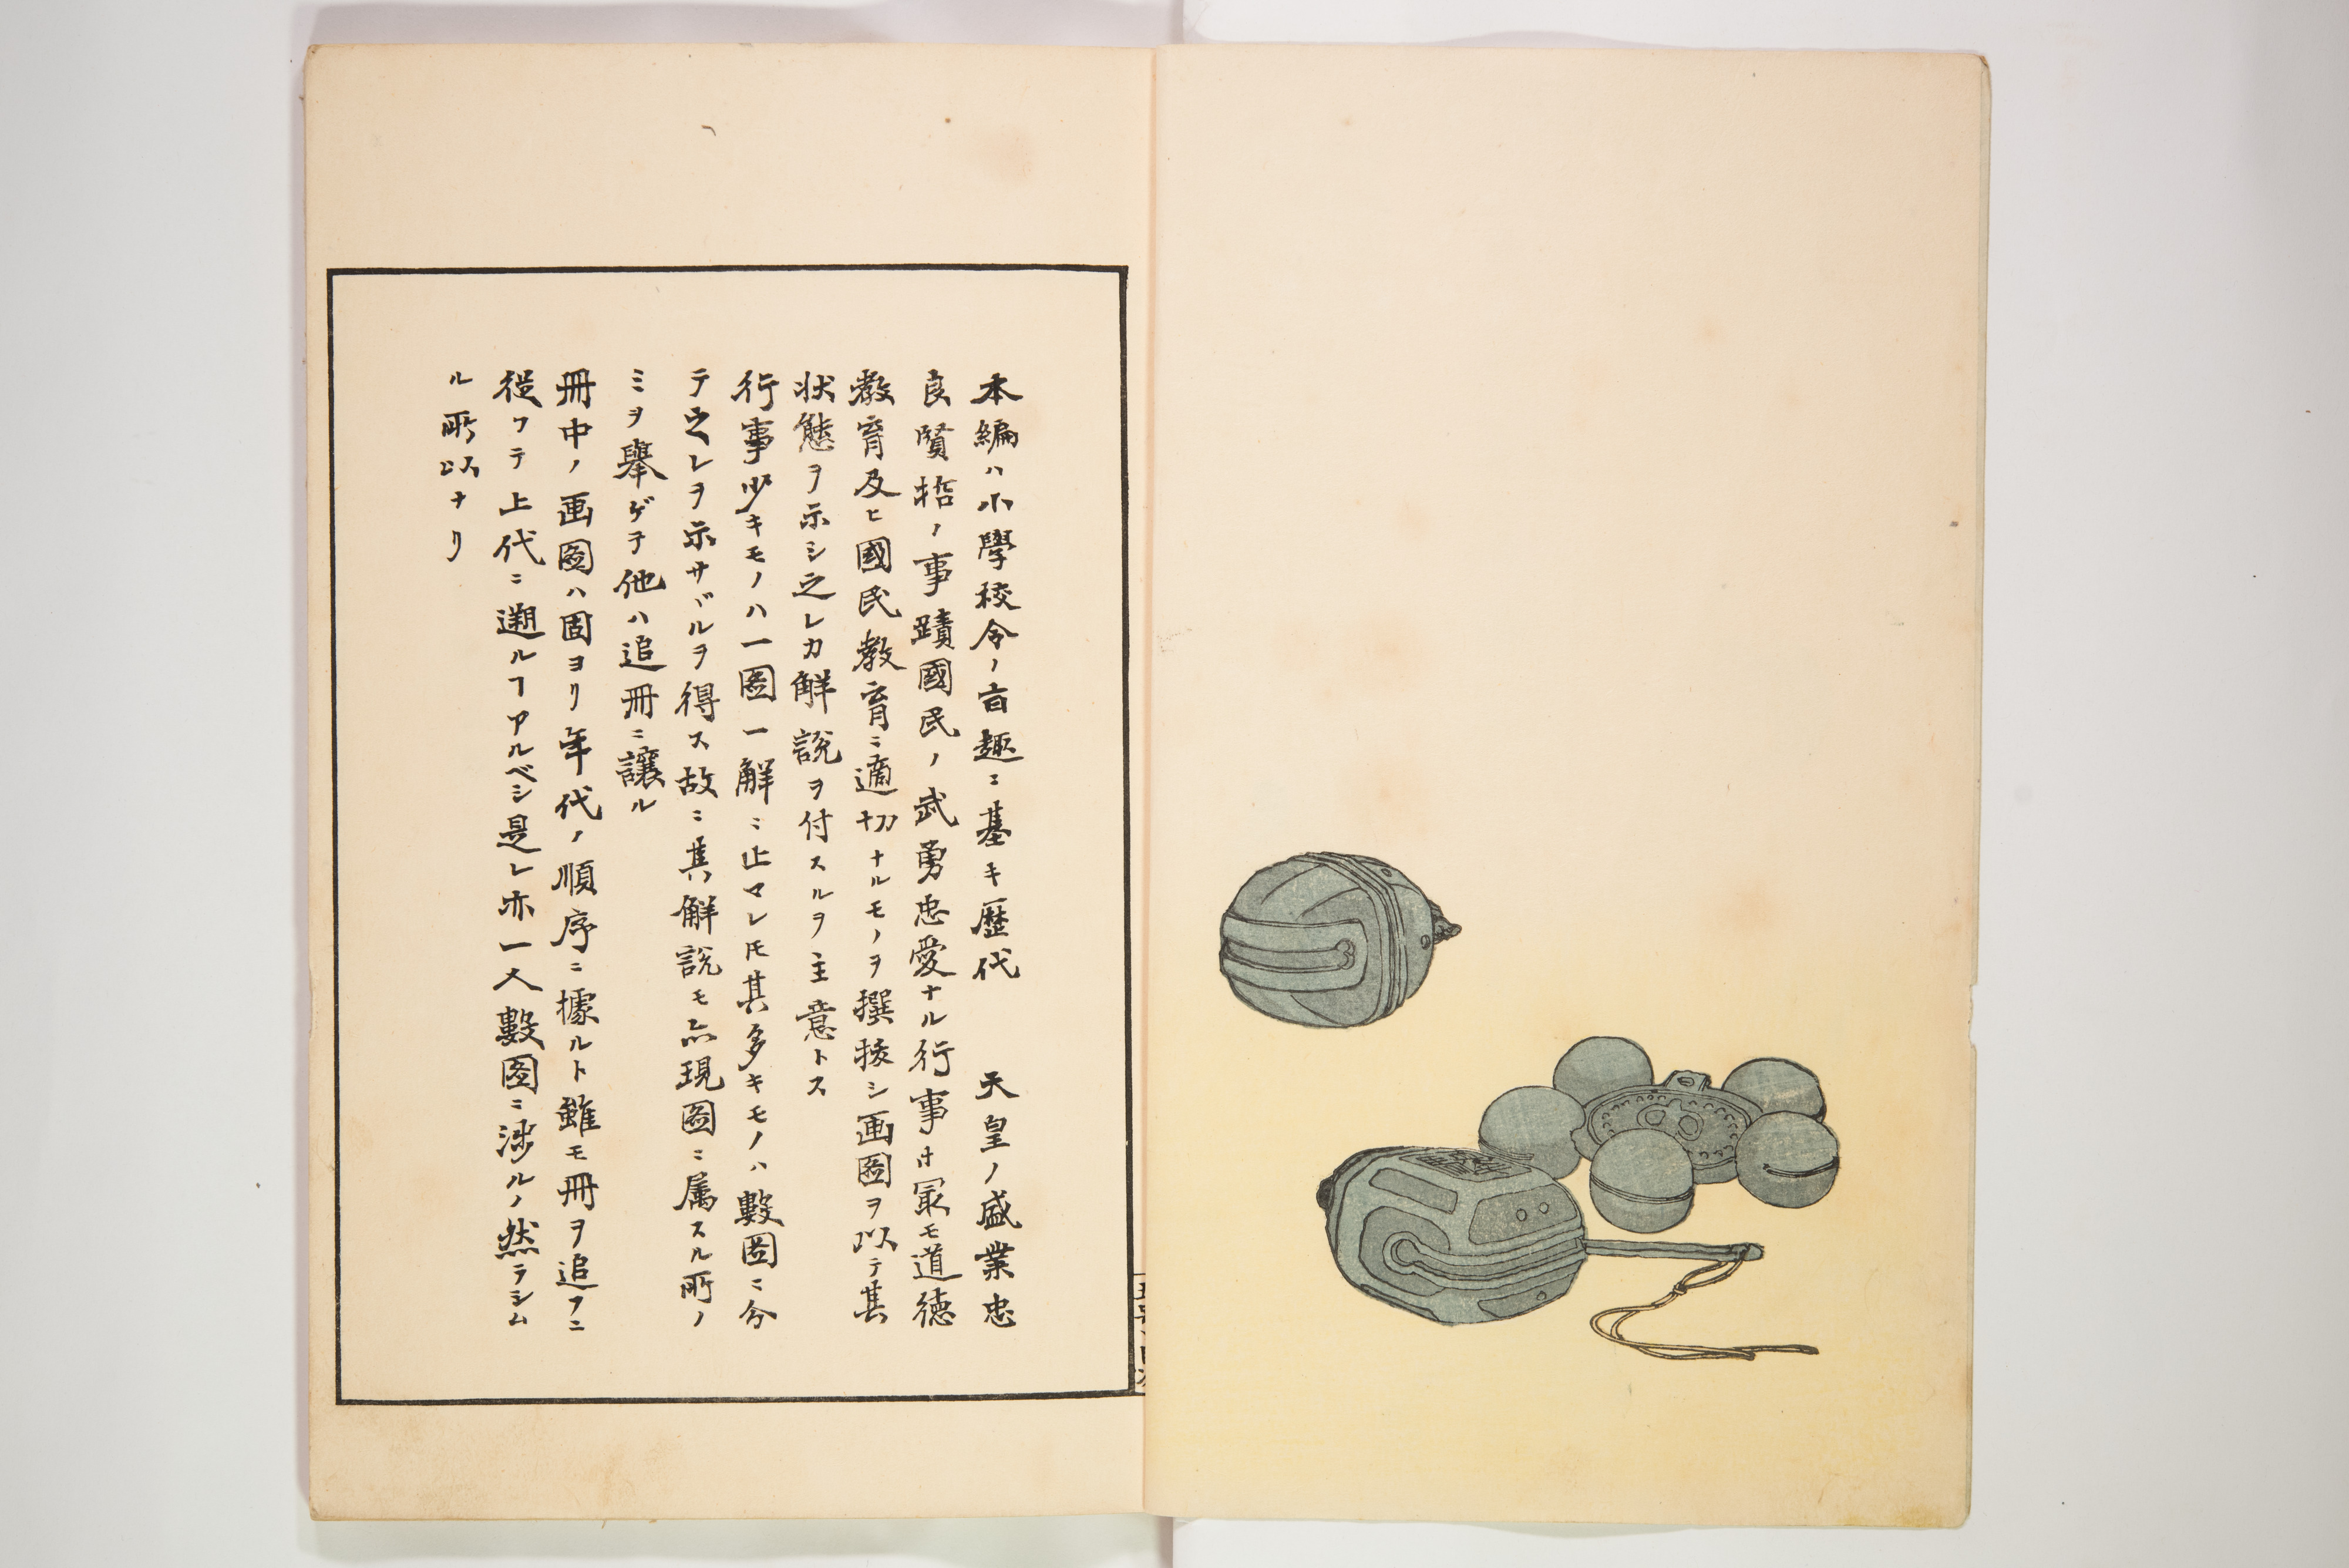 本編ハ小學校令ノ旨趣ニ基キ歴代　天皇ノ盛業忠
良賢哲ノ事蹟國民ノ武勇忠愛ナル行事中冣モ道徳
教育及ヒ國民教育ニ適切ナルモノヲ撰拔シ画圖ヲ以テ其
状態ヲ示シ之レカ解説ヲ付スルヲ主意トス
行事少キモノハ一圖一解ニ止マレ𪜈其多キモノハ數圖ニ分
テ之レヲ示サヾルヲ得ス故ニ其解説モ亦現圖ニ属スル所ノ
ミヲ擧ゲテ他ハ追冊ニ讓ル
冊中ノ画圖ハ固ヨリ年代ノ順序ニ據ルト雖モ冊ヲ追フニ
從フテ上代ニ遡ルヿアルベシ是レ亦一人數圖ニ渉ルノ然ラシム
ル所以ナリ